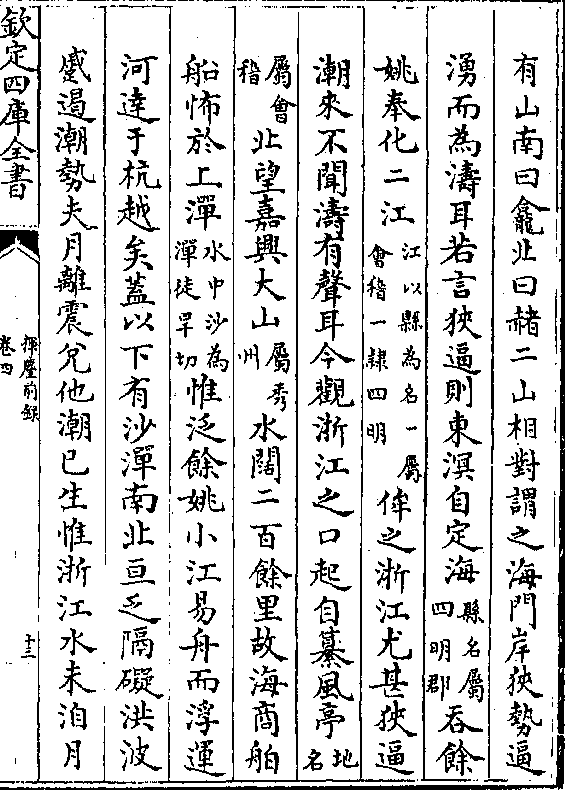 有山南曰龕北曰赭二山相對謂之海門岸狹勢逼
湧而為濤耳若言狹逼則東溟自定海縣名屬四明郡吞餘
姚奉化二江江以縣為名一屬會稽一隷四明侔之浙江尤甚狹逼
潮來不聞濤有聲耳今觀浙江之口起自纂風亭地名
屬會稽北望嘉興大山屬秀州水闊二百餘里故海商舶
船怖於上潬水中沙為潬徒旱切惟泛餘姚小江易舟而浮運
河達于杭越矣蓋以下有沙潬南北亘之隔礙洪波
蹙遏潮勢夫月離震兌他潮已生惟浙江水未洎月
欽定四庫全書
揮麈前錄
卷四
十三